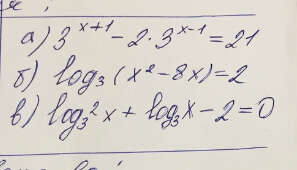 а) 3^(x+1) - 2·3^(x-1) = 21
б) log₃(x² - 8x) = 2
в) log₃²x + log₃x - 2 = 0